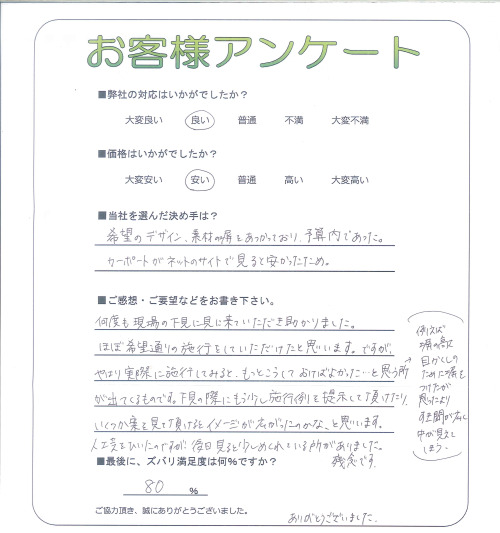 お客様アンケート
■弊社の対応はいかがでしたか？
大変良い 良い 普通 不満 大変不満
■価格はいかがでしたか？
大変安い 安い 普通 高い 大変高い
■当社を選んだ決め手は？
希望のデザイン、素材の塀をあつかっており、予算内であった。
カーポートがネットのサイトで見ると安かったため。
■ご感想・ご要望などをお書き下さい。
何度も現場の下見に見に来ていただき助かりました。
ほぼ希望通りの施行をしていただけたと思います。ですが、
やはり実際に施行してみると、もっとこうしておけばよかった…と思う所
が出てくるものです。下見の際にもう少し施行例を提示して頂けたり、
いくつか実を見て頂けるとイメージが広がったのかな、と思います。
人工芝をひいたのですが、後日見ると少しめくれている所がありました。
残念です。
例えば
塀の最
目かくしの
ための塀を
つけたが
思ったより
す き間が広く
中が見えて
しまう。
■最後に、ズバリ満足度は何%ですか？
80 %
ご協力頂き、誠にありがとうございました。
ありがとうございました。